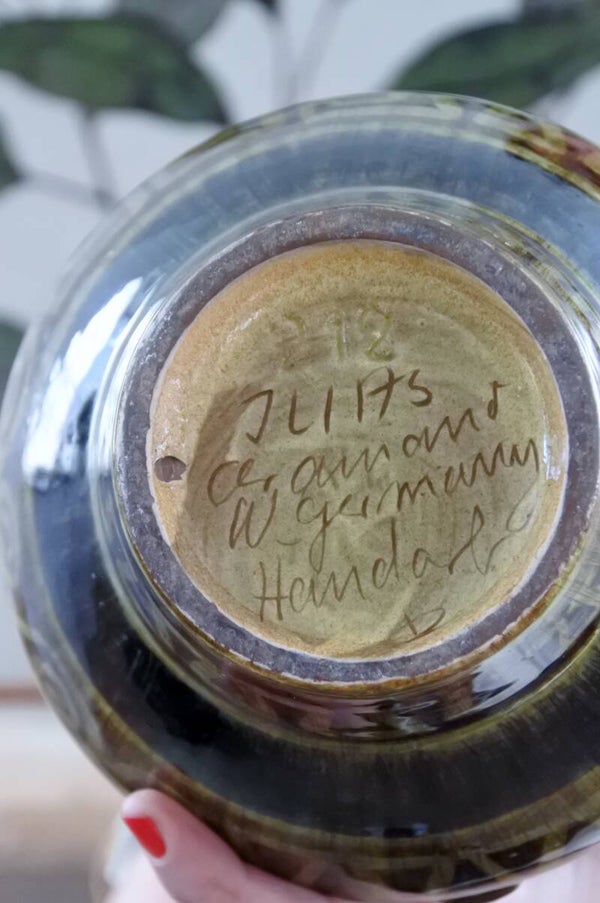 212
ILIAS
ceramano
W. Germany
Handarb